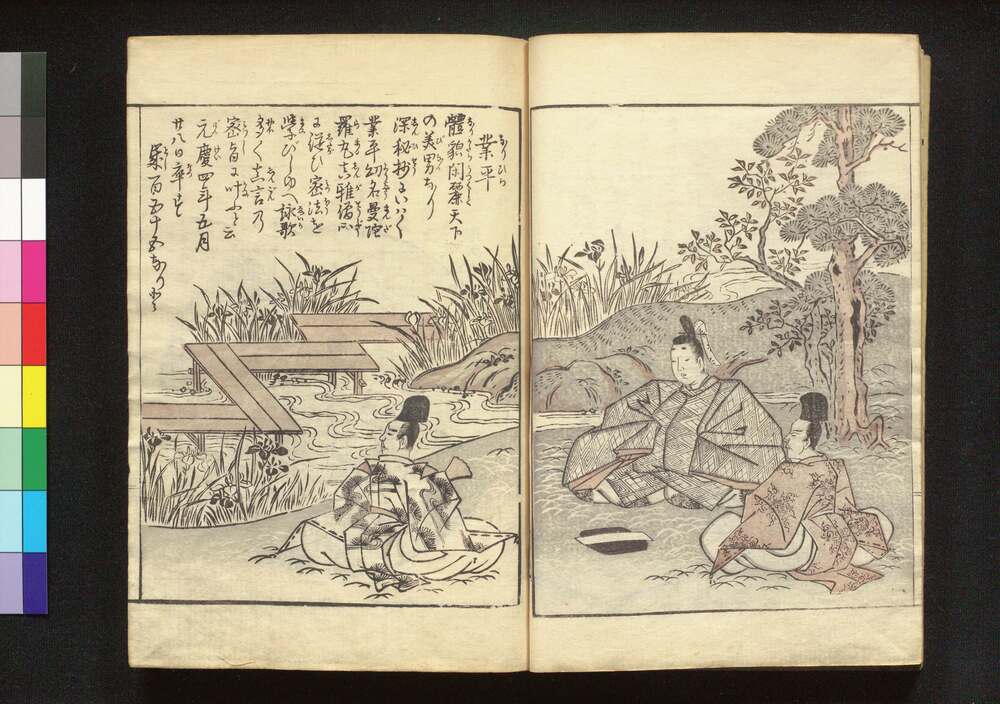 業平
體貌閑麗天下
の美男なり
深秘抄にいはく
業平幼名曼陀
羅丸真雅僧正
に従ひ密法を
学びしゆへ詠歌
多く真言乃
密旨に叶ふと云
元慶四年五月
廿八日卒す
歳五十五なりと